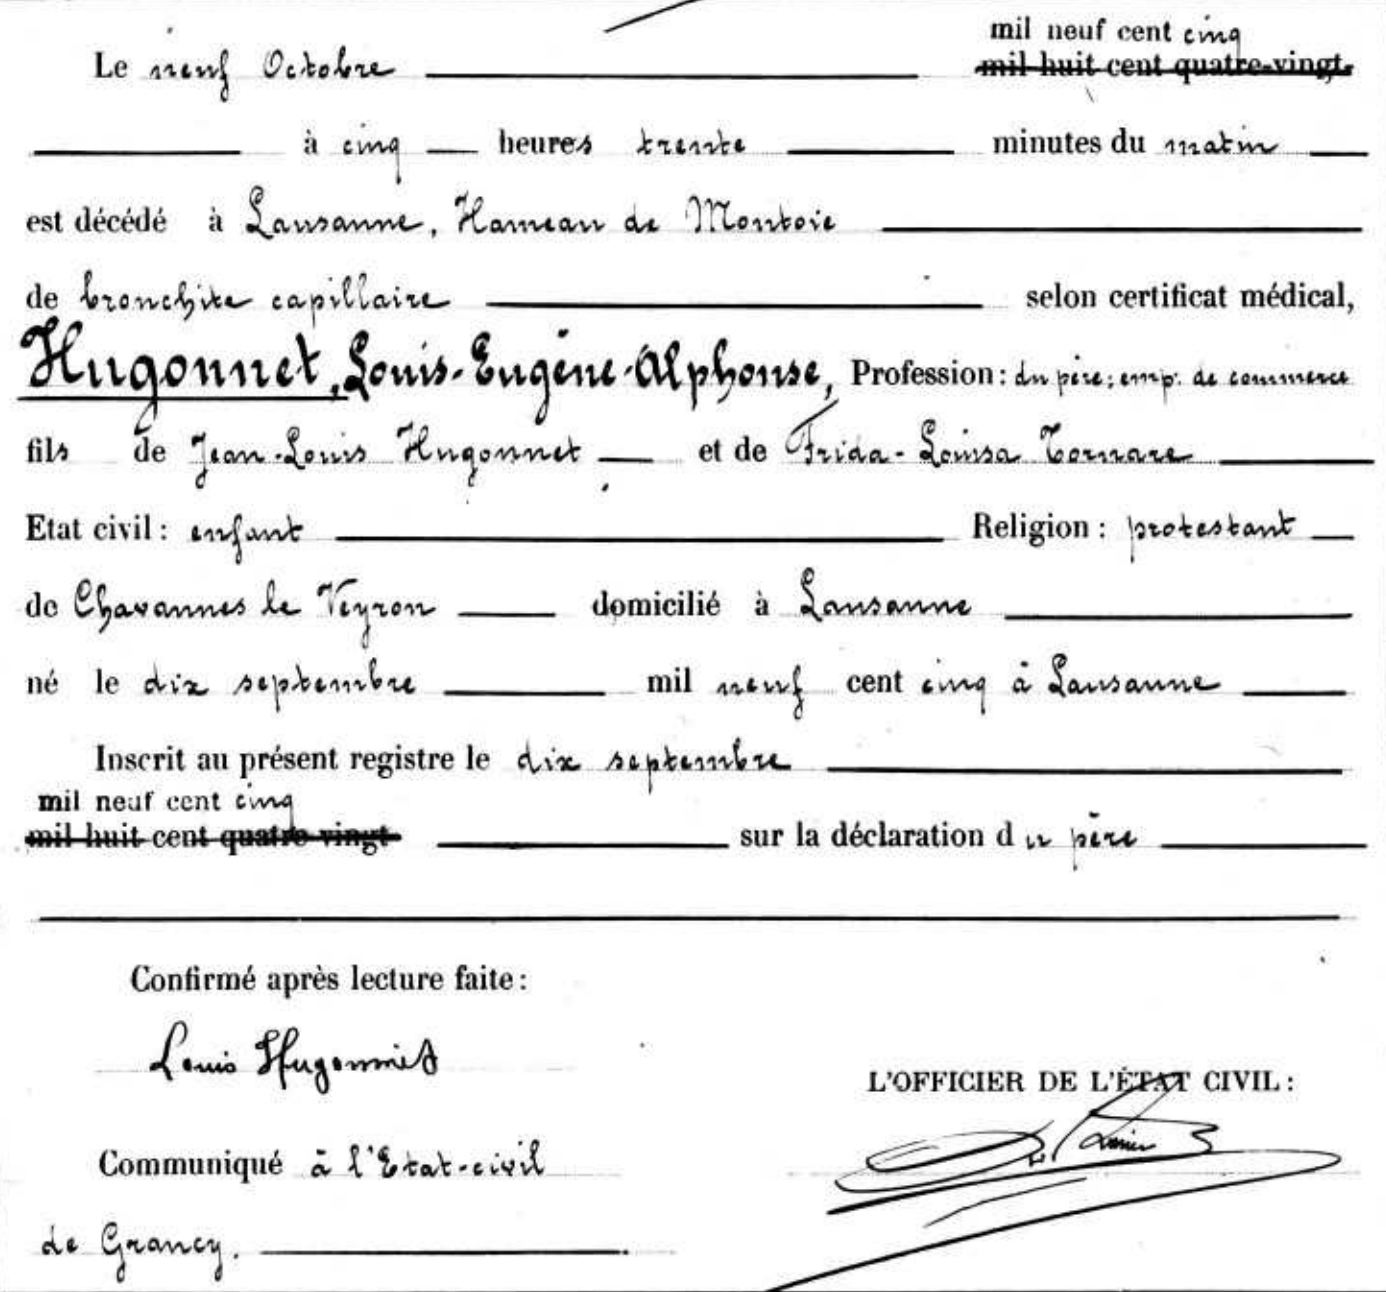 mil neuf cent cinq
Le neuf Octobre mil huit cent quatre-vingt
à cinq heures trente minutes du matin
est décédé à Lausanne, Hameau de Montoie
de bronchite capillaire selon certificat médical,
Hugonnet, Louis-Eugène-Alphonse, Profession : du père; emp. de commerce
fils de Jean-Louis Hugonnet et de Frida-Louisa Tornare
Etat civil : enfant Religion : protestant
de Chavannes le Veyron domicilié à Lausanne
né le dix septembre mil neuf cent cinq à Lausanne
Inscrit au présent registre le dix septembre
mil neuf cent cinq
mil huit cent quatre vingt sur la déclaration du père
Confirmé après lecture faite :
Louis Hugonnet
L'OFFICIER DE L'ÉTAT CIVIL :
Communiqué à l'Etat-civil
de Grancy.